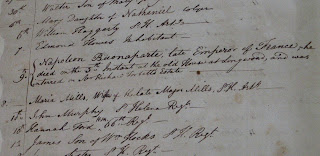 30th Walter Son of
4th Mary Daughter of Nathaniel
6th William Haggerty St H. Art.
7. Edmund Homes Inhabitant
9. Napoleon Buonaparte, late Emperor of France, he
died on the 5th Instant at the old House at Longwood, and was
interred on Mr Richard Torbetts Estate
9. Maria Mills, Wife of the late Major Mills, St H. Art.
10. John Murphy St Helena Regt
10. Hannah Ford 66th Regt
12 James Son of Wm Hooks St H. Regt
St H. Regt